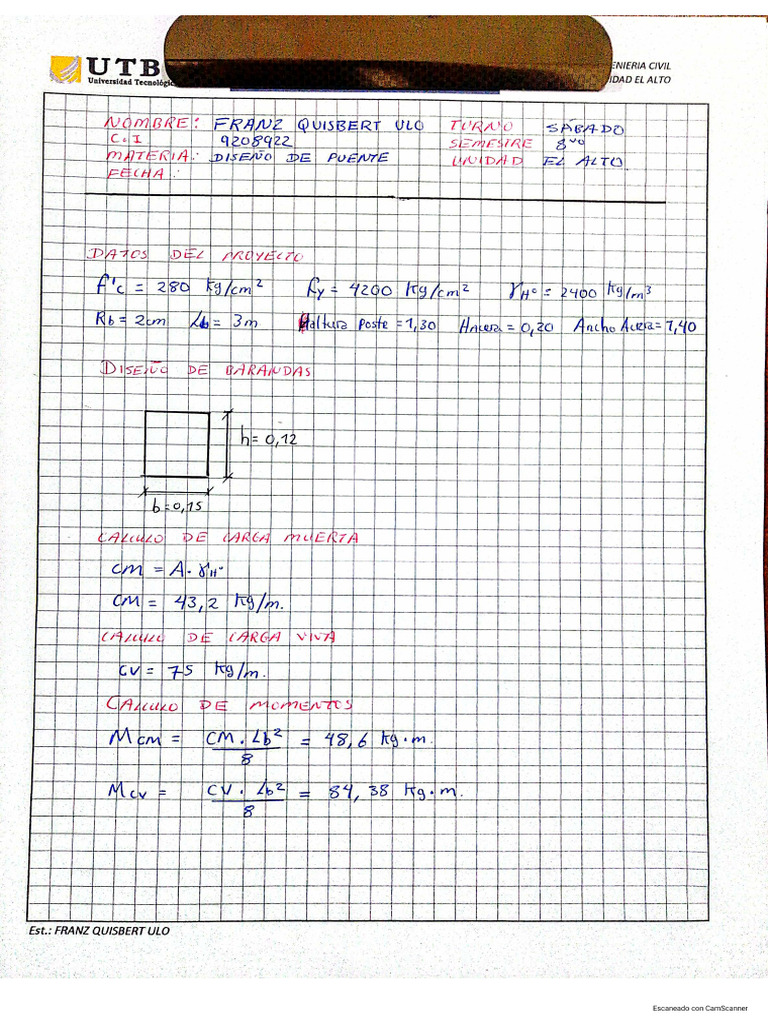 UTB
Universidad Tecnológic
ENIERIA CIVIL
IDAD EL ALTO
NOMBRE: FRANZ QUISBERT ULO TURNO SÁBADO
C.I 9208922 SEMESTRE 8vo
MATERIA: DISEÑO DE PUENTE UNIDAD EL ALTO
FECHA:
DATOS DEL PROYECTO
f'c = 280 kg/cm² fy = 4200 kg/cm² γH° = 2400 kg/m³
Rb = 2cm Lb = 3m Haltura Poste = 1,30 Hacera = 0,20 Ancho Acera = 1,40
DISEÑO DE BARANDAS
h = 0,12
b = 0,15
CALCULO DE CARGA MUERTA
CM = A · γH°
CM = 43,2 kg/m.
CALCULO DE CARGA VIVA
CV = 75 kg/m.
CALCULO DE MOMENTOS
Mcm = CM · Lb² / 8 = 48,6 kg·m.
Mcv = CV · Lb² / 8 = 84,38 kg·m.
Est.: FRANZ QUISBERT ULO
Escaneado con CamScanner